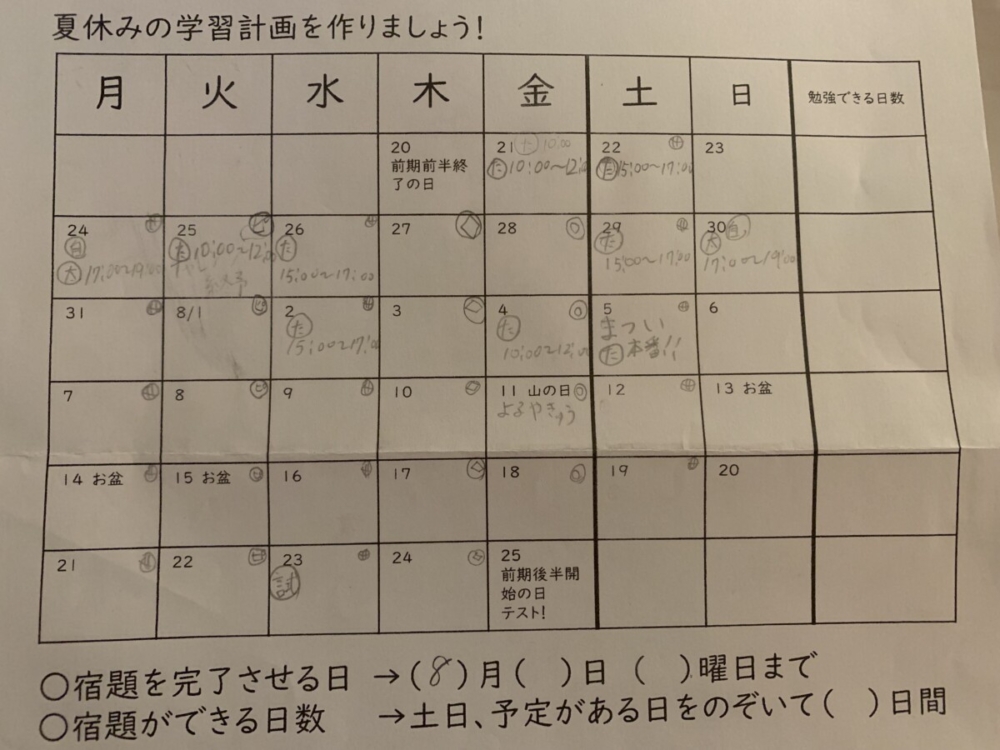 夏休みの学習計画を作りましょう!
月 火 水 木 金 土 日 勉強できる日数
20 前期前半終了の日
21 た 10:00
た 10:00〜12:00
22
た 15:00〜17:00
23
24
大 17:00〜19:00
25
た 10:00〜12:00
26
た
15:00〜17:00
27
28
29
た
15:00〜17:00
30
大
17:00〜19:00
31
8/1
2
た
15:00〜17:00
3
4
た
10:00〜12:00
5
まつい
た 本番!!
6
7
8
9
10
11 山の日
よるやきゅう
12
13 お盆
14 お盆
15 お盆
16
17
18
19
20
21
22
23
試
24
25
前期後半開
始の日
テスト!
○宿題を完了させる日 →(8)月( )日 ( )曜日まで
○宿題ができる日数 →土日、予定がある日をのぞいて( )日間